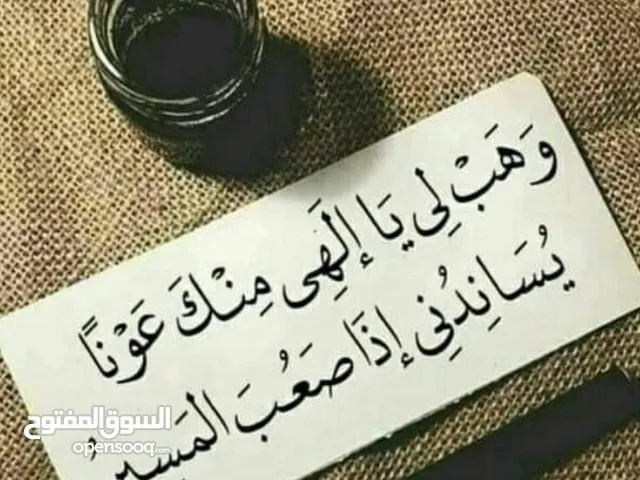 وَهَبْ لِي يَا إِلَهِي مِنْكَ عَوْنًا
يُسَانِدُنِي إِذَا صَعُبَ المَسِيرُ
السوق المفتوح
opensooq.com